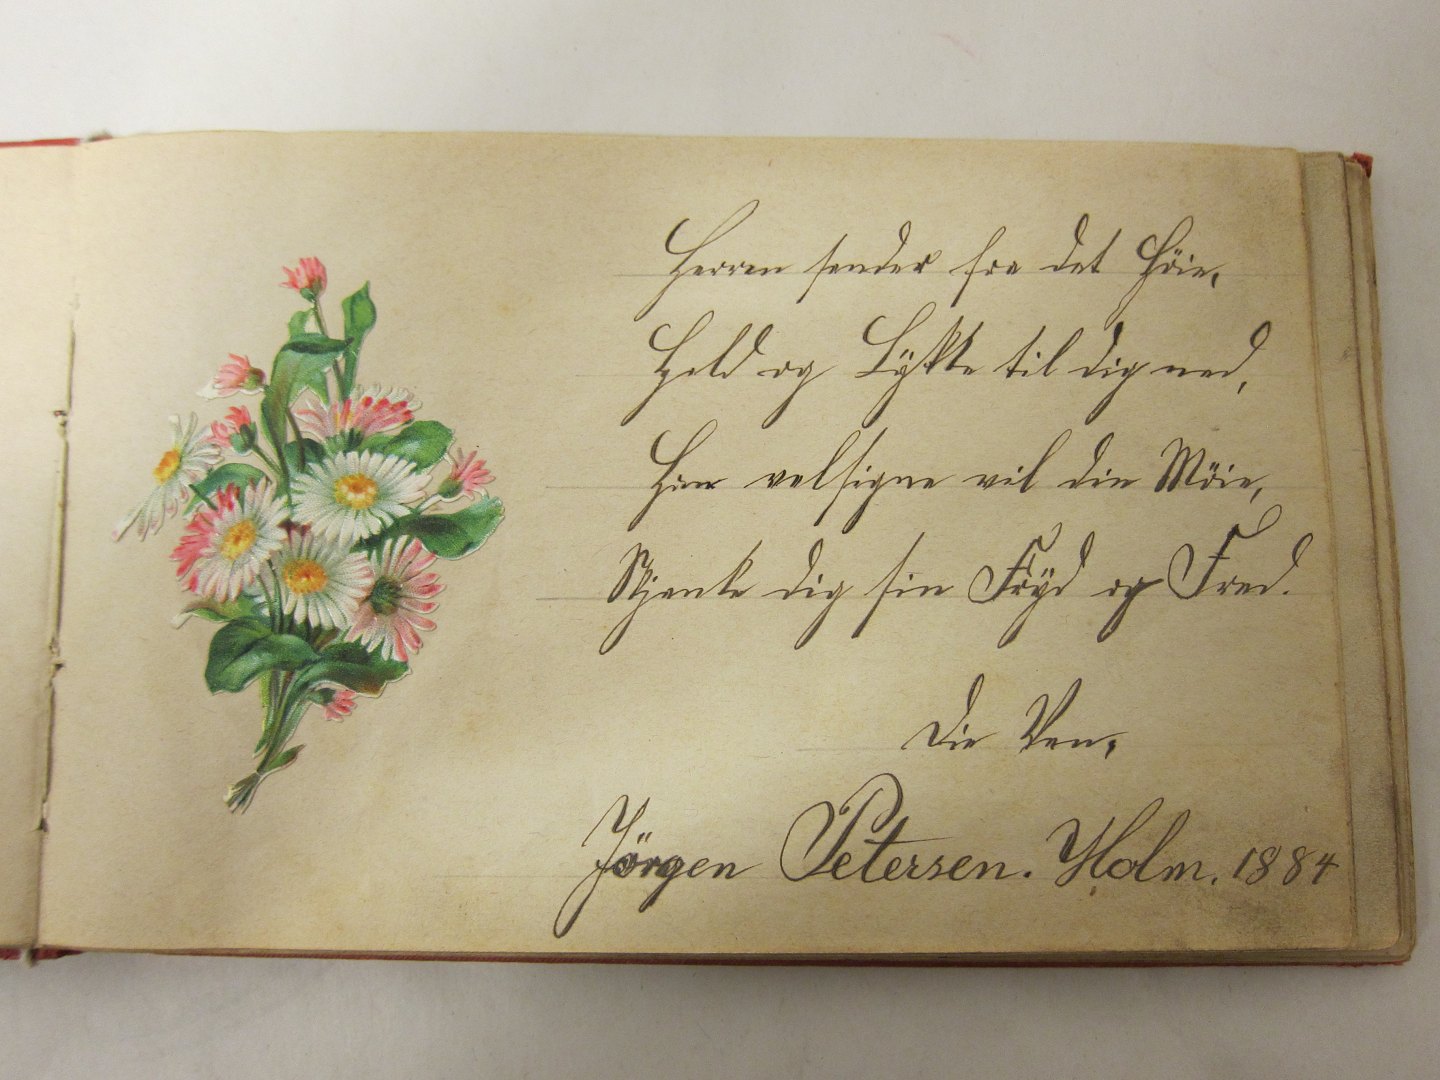 Herren sender fra det Höie,
Held og Lykke til dig ned,
Han velsigne vil din Möie,
Skjenke dig sin Fryd og Fred.
Din Ven,
Jörgen Petersen. Holm. 1884